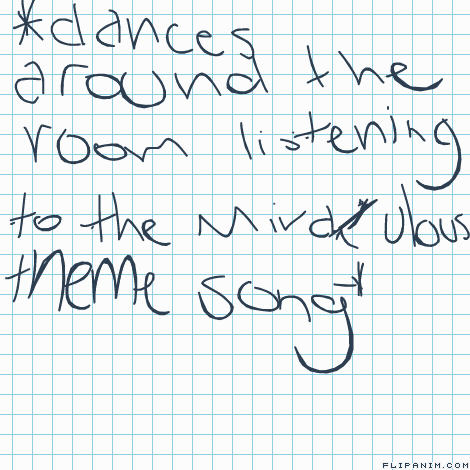 *dances
around the
room listening
to the Miraculous
theme song*
FLIPANIM.COM